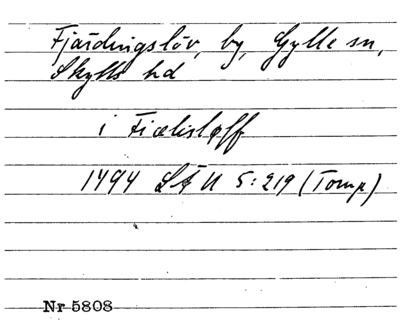 Fjärdingslöv, by, Gylle sn,
Skytts hd
i Fiælisløff
1494 LÅU 5:219 (Tomp)
Nr 5808